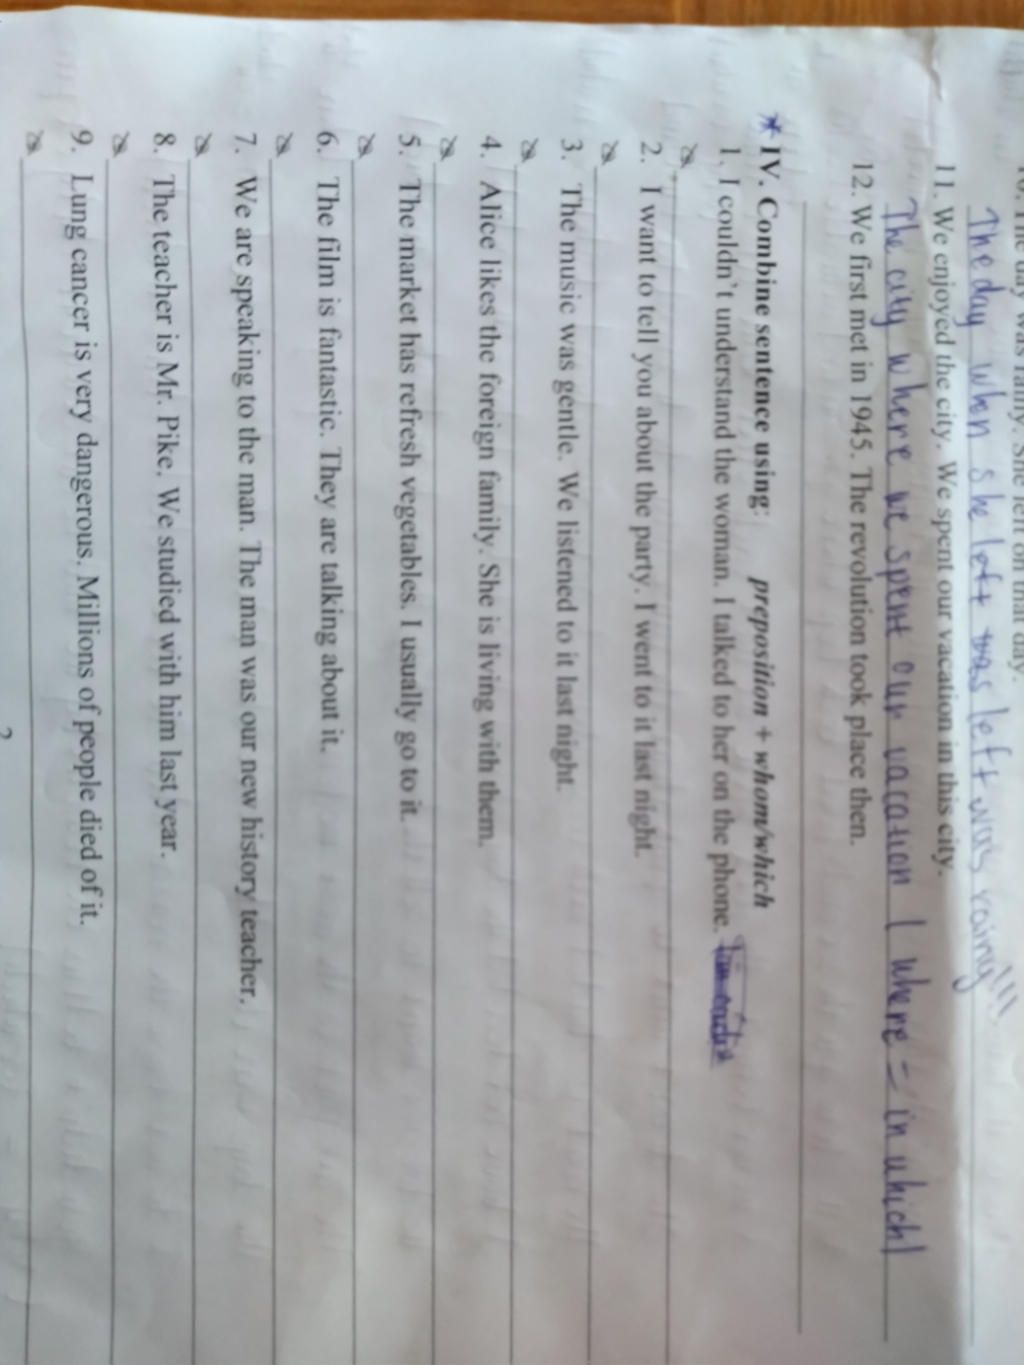 10. The day was rainy. She left on that day.
The day when she left was left was rainy!!!
11. We enjoyed the city. We spent our vacation in this city.
The city where we spent our vacation ( where = in which)
12. We first met in 1945. The revolution took place then.
* IV. Combine sentence using: preposition + whom/which
1. I couldn't understand the woman. I talked to her on the phone.
2. I want to tell you about the party. I went to it last night.
3. The music was gentle. We listened to it last night.
4. Alice likes the foreign family. She is living with them.
5. The market has refresh vegetables. I usually go to it.
6. The film is fantastic. They are talking about it.
7. We are speaking to the man. The man was our new history teacher.
8. The teacher is Mr. Pike. We studied with him last year.
9. Lung cancer is very dangerous. Millions of people died of it.
2